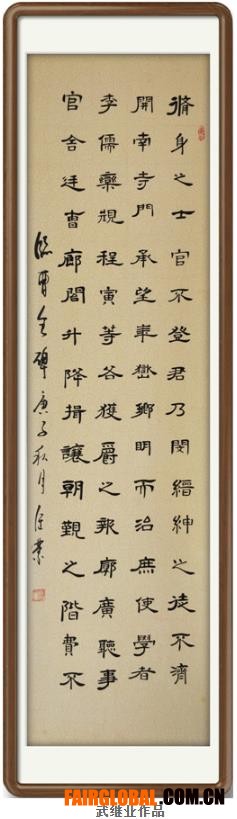 脩身之士官不登君乃閔縉紳之徒不濟
開南寺門承望華嶽鄉明而治庶使學者
李儒欒規程寅等各獲爵之報廓廣聽事
官舍廷曹廊閣升降揖讓朝覲之階費不
臨曹全碑庚子秋月
FAIRGLOBAL.COM.CN
武继业作品